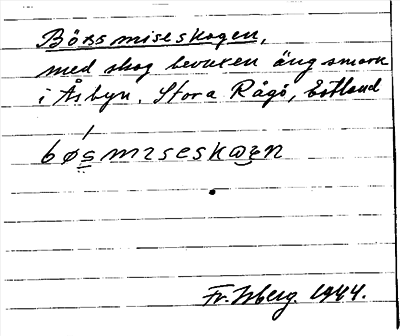 Bössmiseskogen,
med skog bevuxen ängsmark
i Åsbyn. Stora Rågö, Estland
bøsmıseskωgεn
Fr. Isberg. 1944.